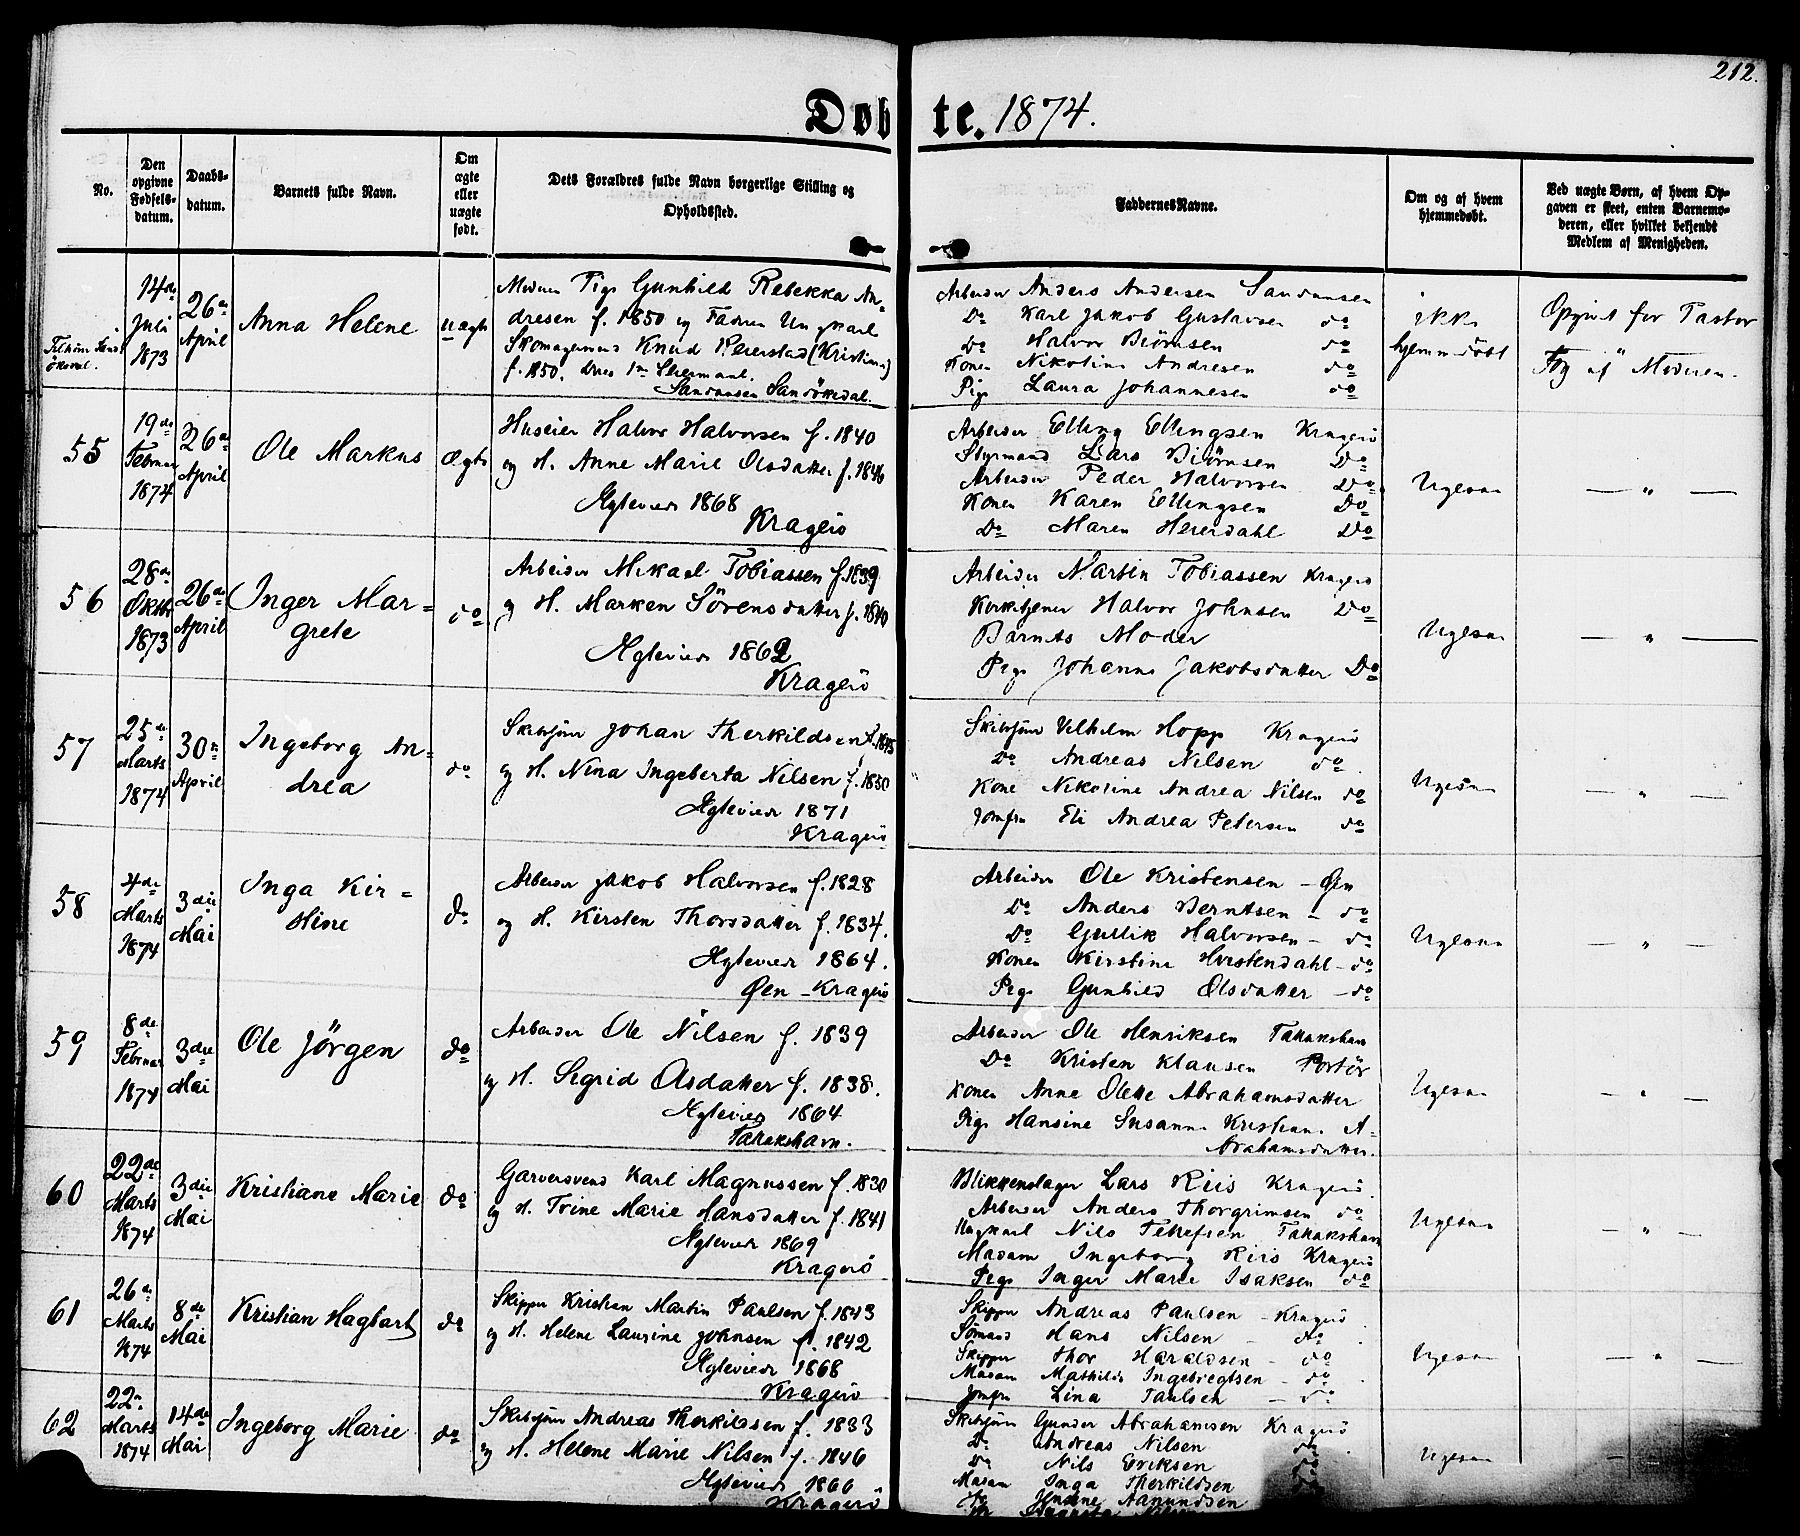 212.
Døbte. 1874.
No.
Den opgivne Fødsels-datum.
Daabs-datum.
Barnets fulde Navn.
Om ægte eller uægte født.
Dets Forældres fulde Navn borgerlige Stilling og Opholdssted.
Faddernes Navne.
Om og af hvem hjemmedøbt.
Ved uægte Børn, af hvem Op-gaven er skeet, enten Barnemo-deren, eller hvilket bekjendt Medlem af Menigheden.
14de Juli 1873
26de April
Anna Helene
uægte
Moderen Pige Gunhild Rebekka An-
dresen f. 1850 og Faderen Ungkarl
Knud
f. 1850.
Arbeider Anders Andersen
Do Karl Jakob Gustavsen do
Do Halvor Biörnsen do
Konen Nikoline Andresen do
Pige Laura Johannesen do
ikke
hjemmedöbt
Opgivet for Pastor
Fog af Moderen.
55
19de Februar 1874
26de April
Ole Markus
Ægte
Huseier Halvor Halvorsen f. 1840
og H. Anne Marie Olsdatter f. 1846
Ægteviede 1868
Kragerö
Arbeider Elling Ellingsen Kragerö
Styrmand Lars Biörnsen Do
Arbeider Peder Halvorsen Do
Konen Karen Ellingsen Do
Do Maren Heierdahl Do
— " —
56
28de Oktbr 1873
26de April
Inger Mar=
grete
do
Arbeider Mikael Tobiassen f. 1839
og H. Maren Sörensdatter f. 1840
Ægteviede 1862
Kragerö
Arbeider Martin Tobiassen Kragerö
Kirketjener Halvor Johnsen Do
Barnets Moder
Pige Johanne Jakobsdatter Do
— " —
57
25de Marts 1874
30te April
Ingeborg An=
drea
do
Skibstjmr Johan Therkildsen f. 1845
og H. Nina Ingeberta Nilsen f. 1850
Ægteviede 1871
Kragerö
Skibstjmr Vilhelm Hopp Kragerö
Do Andreas Nilsen do
Kone Nikoline Andrea Nilsen do
Jomfru Eli Andrea Petersen do
— " —
58
4de Marts 1874
3die Mai
Inga Kir=
stine
do
Arbeider Jakob Halvorsen f. 1828
og H. Kirsten Thorsdatter f. 1834.
Ægteviede 1864.
Øen - Kragerö
Arbeider Ole Kristensen - Øen
Do Anders Berntsen - do
Do Gullik Halvorsen - do
Konen Kirstine Hvistendahl - do
Pige Gunhild Olsdatter - do
— " —
59
8de Februar 1874
3die Mai
Ole Jörgen
do
Arbeider Ole Nilsen f. 1839
og H. Sigrid Olsdatter f. 1838.
Ægteviede 1864
Arbeider Ole Henriksen
Do Kristen Klausen Portör
Konen Anne Olette Abrahamsdatter
Pige Hansine Susanne Kristiane A-
Abrahamsdatter.
— " —
60
22de Marts 1874
3die Mai
Kristiane Marie
do
Garversvend Karl Magnussen f. 1830
og H. Trine Marie Hansdatter f. 1841
Ægteviede 1869
Kragerö
Blikkenslager Lars Riis Kragerö
Arbeider Anders Thorgrimsen do
Ungkarl Nils Tellefsen
Madam Ingeborg Riis Kragerö
Pige Inger Marie Isaksen do
— " —
61
26de Marts 1874
8de Mai
Kristian Hagbart
do
Skipper Kristian Martin Paulsen f. 1843
og H. Helene Laurine Johnsen f. 1842
Ægteviede 1868
Kragerö
Skipper Andreas Paulsen - Kragerö
Sömand Hans Nilsen - do
Skipper Thor Haraldsen - do
Madam Mathilde Ingebregtsen - do
Jomfru Lina Paulsen - do
— " —
62
22de Marts 1874
14de Mai
Ingeborg Marie
do
Skibstjmr Andreas Therkildsen f. 1833
og H. Helene Marie Nilsen f. 1846
Ægteviede 1866
Kragerö
Skibstjmr Gunder Abrahamsen Kragerö
Do Andreas Nilsen do
Do Nils Eriksen do
Madam Inga Therkildsen
Do Aamundsen